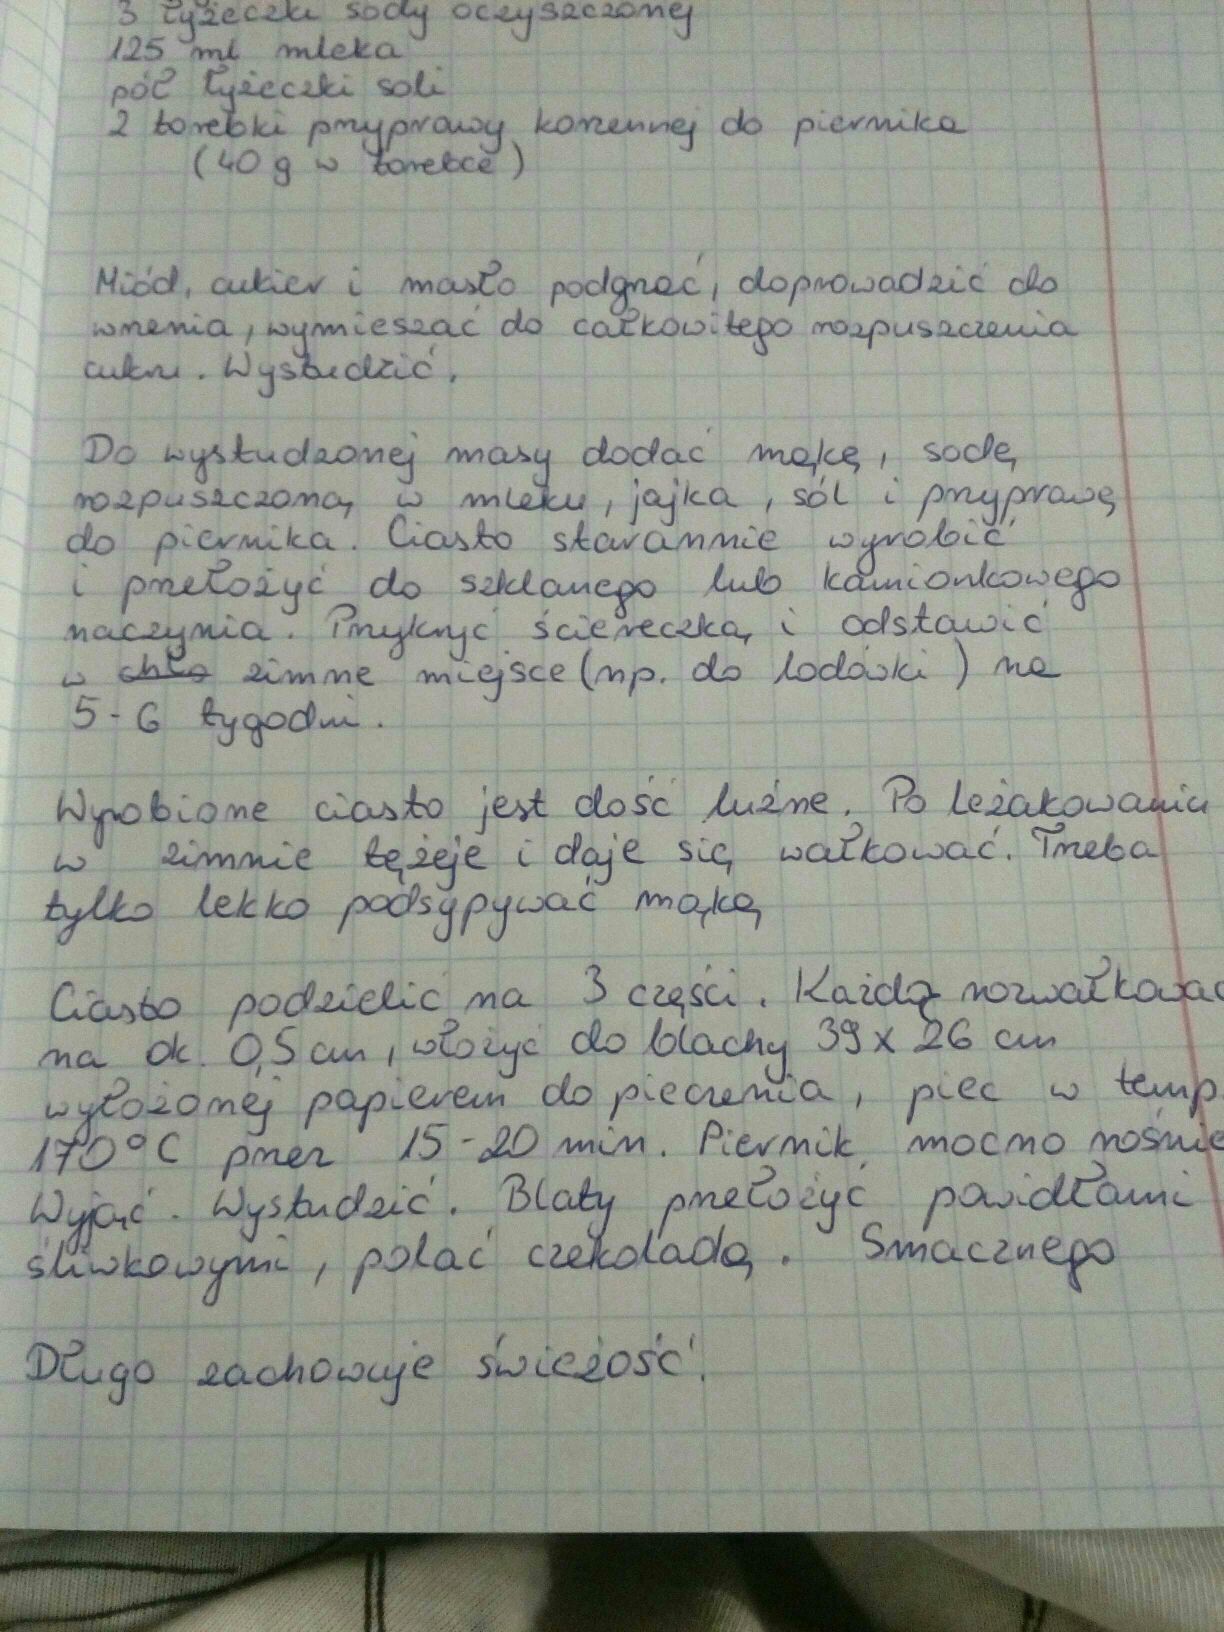 3 łyżeczki sody oczyszczonej
125 ml mleka
pół łyżeczki soli
2 torebki przyprawy korzennej do piernika
(40 g w torebce)
Miód, cukier i masło podgrzać, doprowadzić do
wrzenia, wymieszać do całkowitego rozpuszczenia
cukru. Wystudzić.
Do wystudzonej masy dodać mąkę, sodę
rozpuszczoną w mleku, jajka, sól i przyprawę
do piernika. Ciasto starannie wyrobić
i przełożyć do szklanego lub kamionkowego
naczynia. Przykryć ściereczką i odstawić
w chło zimne miejsce (np. do lodówki) na
5-6 tygodni.
Wyrobione ciasto jest dość luźne. Po leżakowaniu
w zimnie tężeje i daje się wałkować. Trzeba
tylko lekko podsypywać mąką
Ciasto podzielić na 3 części. Każdą rozwałkować
na ok. 0,5 cm, włożyć do blachy 39 x 26 cm
wyłożonej papierem do pieczenia, piec w temp.
170°C przez 15-20 min. Piernik mocno rośnie
Wyjąć. Wystudzić. Blaty przełożyć powidłami
śliwkowymi, polać czekoladą. Smacznego
Długo zachowuje świeżość.